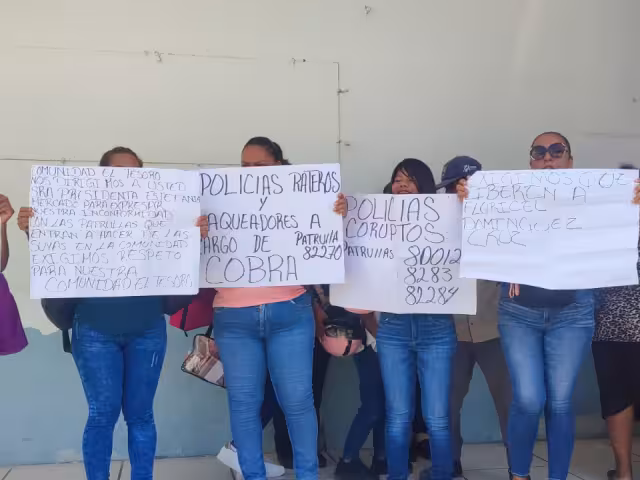 COMUNIDAD EL TESORO
NOS DIRIGIMOS A USTED
SRA PRESIDENTA ESTEFANA
MERCADO PARA EXPRESAR
NUESTRA INCONFORMIDAD
CON LAS PATRULLAS QUE
ENTRAN A HACER DE LAS
SUYAS EN LA COMUNIDAD
EXIGIMOS RESPETO
PARA NUESTRA
COMUNIDAD EL TESORO
POLICIAS RATEROS
Y
SAQUEADORES A
CARGO DE PATRULLA
82270
COBRA
POLICIAS
CORUPTOS
PATRULLAS 80012
8283
82284
LIBEREN A
FLORICEL
DOMINGUEZ
CRUZ